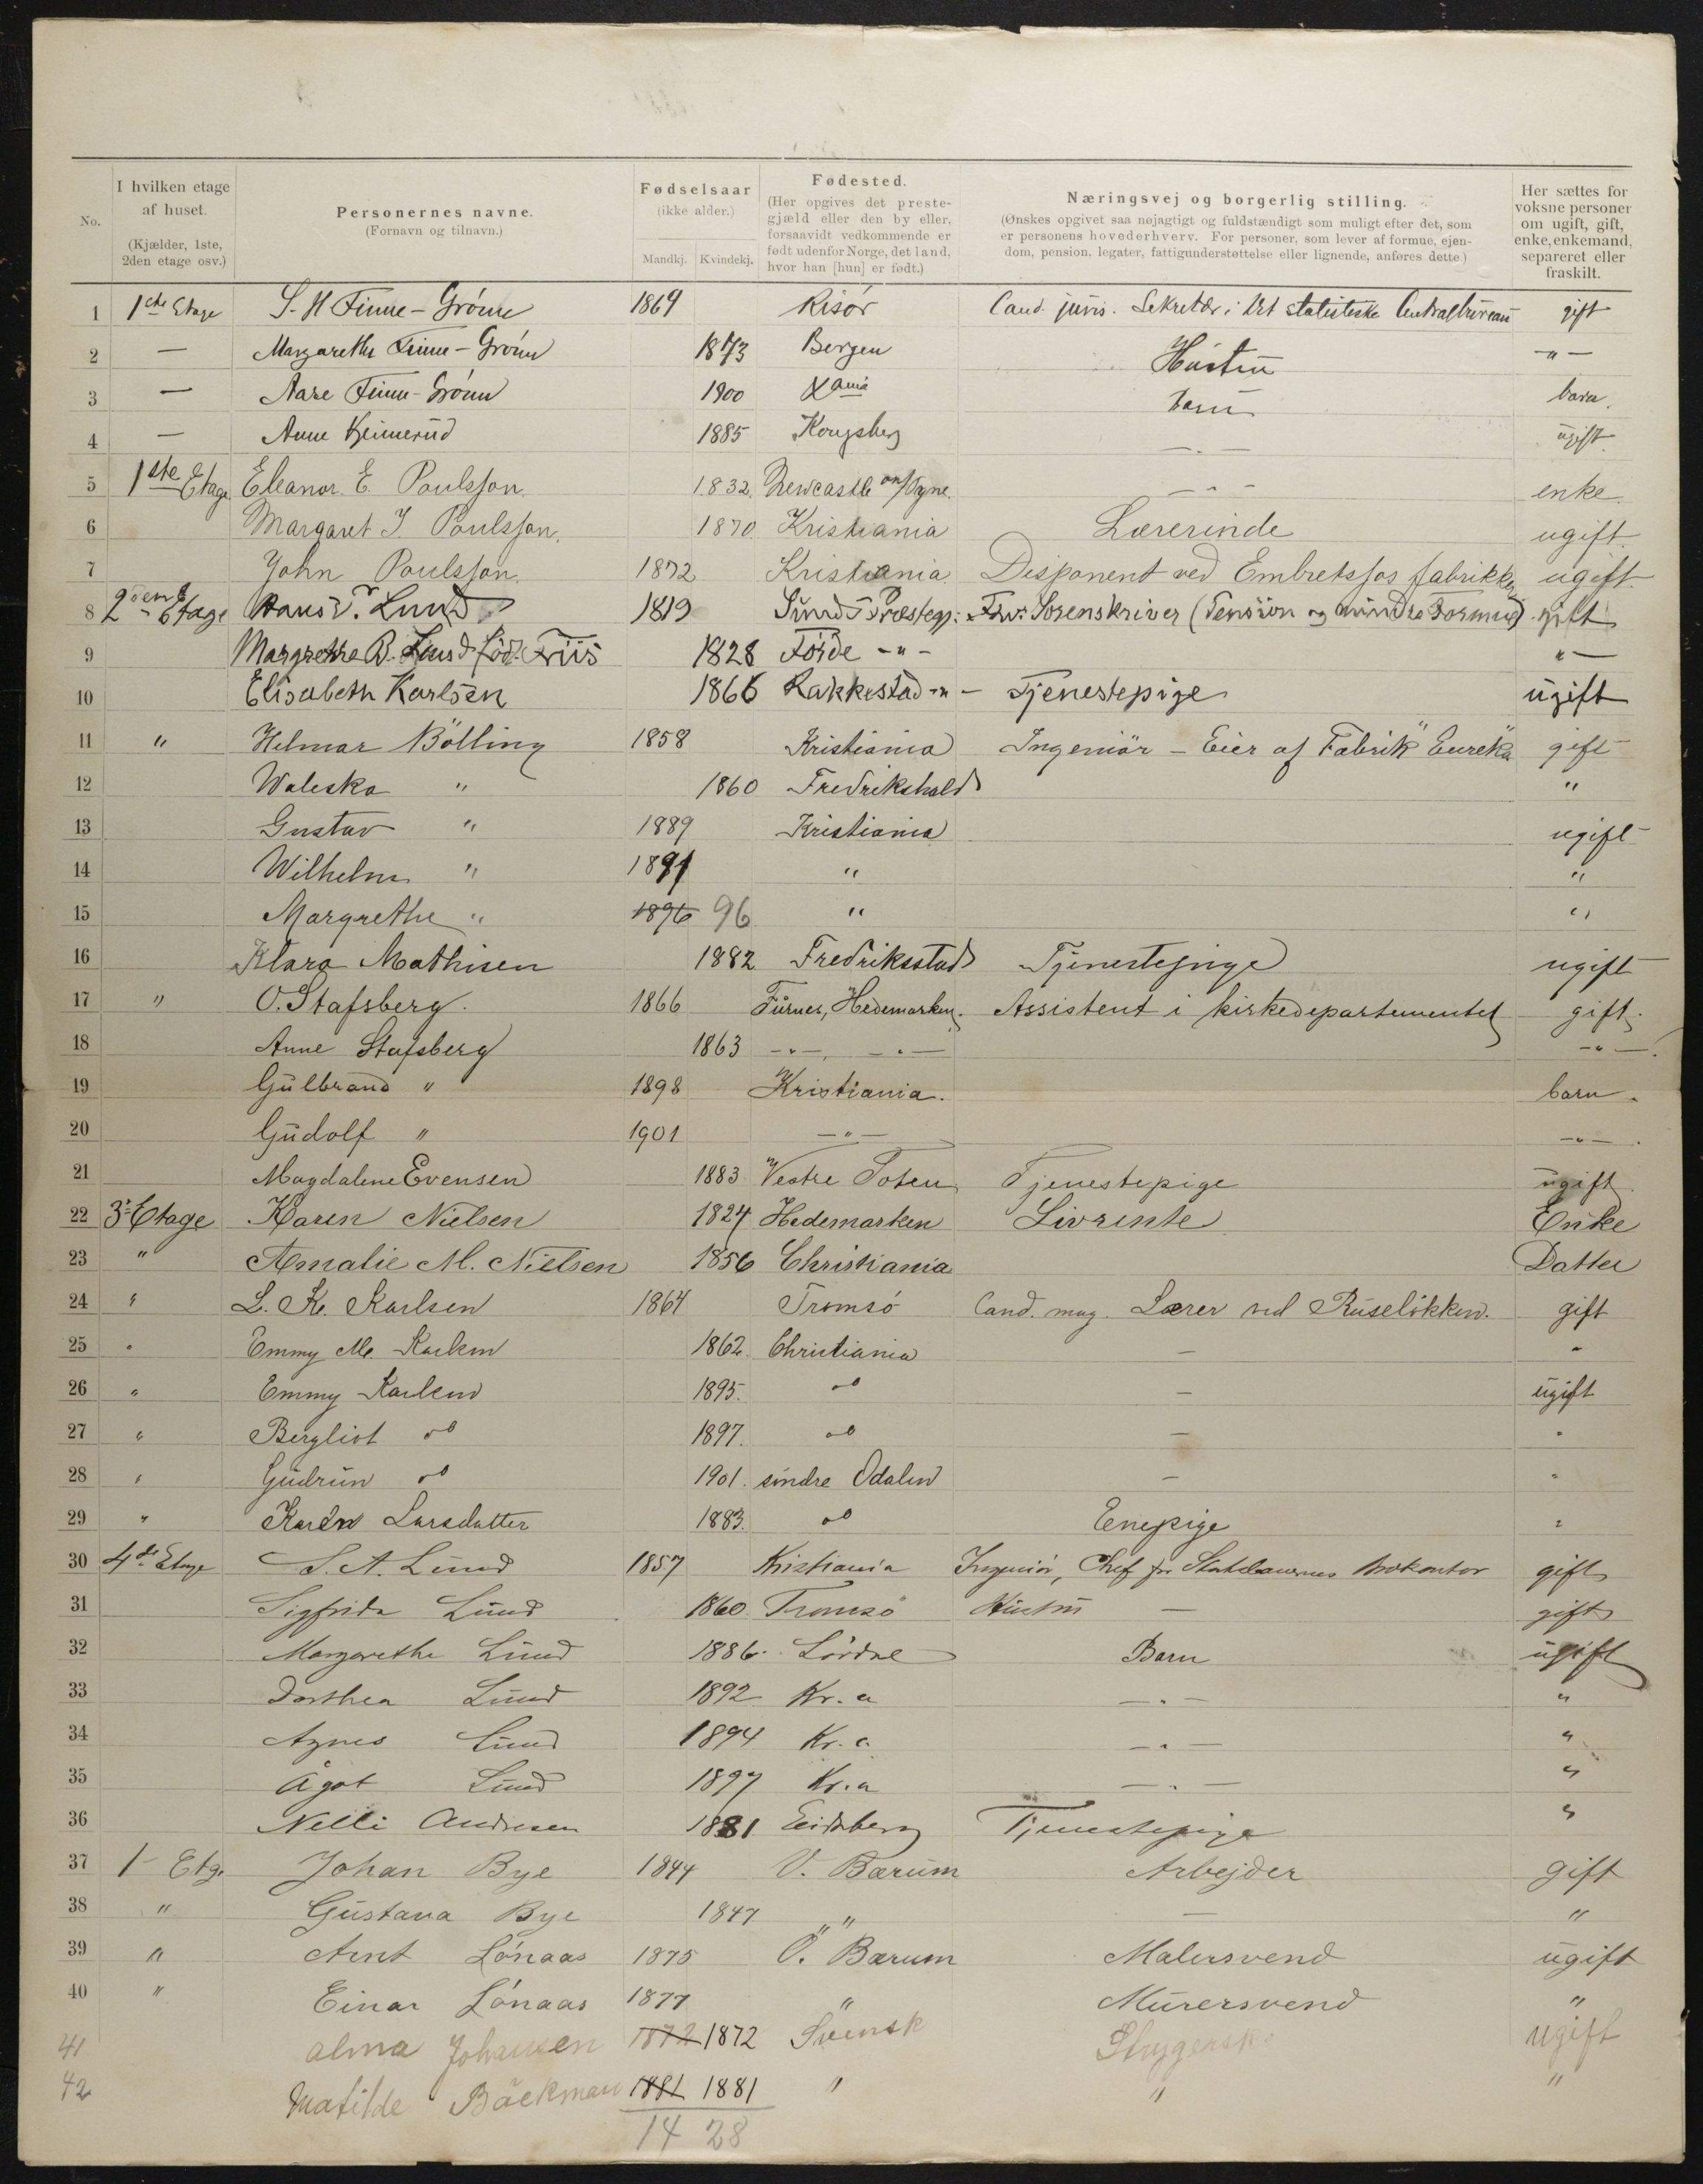 No.
I hvilken etage af huset. (Kjælder, 1ste, 2den etage osv.)
Personernes navne. (Fornavn og tilnavn.)
Fødselsaar (ikke alder.) Mandkj. Kvindekj.
Fødested. (Her opgives det prestegjæld eller den by eller, forsaavidt vedkommende er født udenfor Norge, det land, hvor han [hun] er født.)
Næringsvej og borgerlig stilling. (Ønskes opgivet saa nøjagtigt og fuldstændigt som muligt efter det, som er personens hovederhverv. For personer, som lever af formue, ejendom, pension, legater, fattigunderstøttelse eller lignende, anføres dette.)
Her sættes for voksne personer om ugift, gift, enke, enkemand, separeret eller fraskilt.
1 1ste Etage S. H Finne-Grønn 1869 Risør Cand. juris. Sekretær i Det statistiske Centralbureau gift
2 — Margarethe Finne-Grønn 1873 Bergen Hustru -"-
3 — Aare Finne-Grønn 1900 Xania barn barn
4 — Anne 1885 Kongsberg -"- ugift
5 1ste Etage Eleanor E. Poulsson 1832 Newcastle on/Tyne -"- enke
6 Margaret J. Poulsson 1870 Kristiania Lærerinde ugift
7 John Poulsson 1872 Kristiania Disponent ved Embretsfos fabrikker ugift
8 2den Etage Hans P. Lund 1819 Sunds Præstegj: Frv. Sorenskriver (Pension og mindre Formue) gift
9 Margrethe B. Lund fød. Friis 1828 Førde -"- "-
10 Elisabeth Karlsen 1866 Rakkestad -"- Tjenestepige ugift
11 " Helmar Bölling 1858 Kristiania Ingeniør - Eier af Fabrik "Eureka" gift
12 Waleska " 1860 Fredrikshald "
13 Gustav " 1889 Kristiania ugift
14 Wilhelm " 1891 " "
15 Margrethe " 1896 96 " "
16 Klara Mathisen 1882 Fredriksstad Tjenestepige ugift
17 " O. Stafsberg. 1866 Furnes, Hedemarken. Assistent i kirkedepartementet gift.
18 Anne Stafsberg 1863 -"-, -"- -"-.
19 Gulbrand " 1898 Kristiania. barn.
20 Gudolf " 1901 -"- -"-.
21 Magdalene Evensen 1883 Vestre Toten Tjenestepige ugift
22 3' Etage Karen Nielsen 1824 Hedemarken Livrente Enke
23 " Amalie M. Nielsen 1856 Christiania Datter
24 " L. K. Karlsen 1864 Tromsø Cand. mag. Lærer ved Ruseløkken. gift
25 " Emmy M. Karlsen 1862 Christiania — "
26 " Emmy Karlsen 1895. do — ugift
27 " Bergliot do 1897. do — "
28 " Gudrun do 1901. søndre Odalen — "
29 " Karen Larsdatter 1883. do Enepige "
30 4de Etage S. A. Lund 1857 Kristiania Ingeniør, Chef for Statsbanernes Brokontor gift
31 Sigfrida Lund 1860 Tromsø Hustru — gift
32 Margarethe Lund 1886 Barn ugift
33 Dorthea Lund 1892 Kr.a -"- "
34 Agnes Lund 1894 Kr.a -"- "
35 Ågot Lund 1897 Kr.a -"- "
36 Nelli Andresen 1881 Eidsberg Tjenestepige "
37 1 Etg. Johan Bye 1844 V. Bærum Arbejder gift
38 " Gustava Bye 1847 " — "
39 " Arnt Lønaas 1875 Ö. Bærum Malersvend ugift
40 " Einar Lønaas 1877 " Murersvend "
41 Alma Johansen 1872 1872 Svensk Strygerske ugift
42 Matilde Bäckman 1881 1881 " " "
14 28